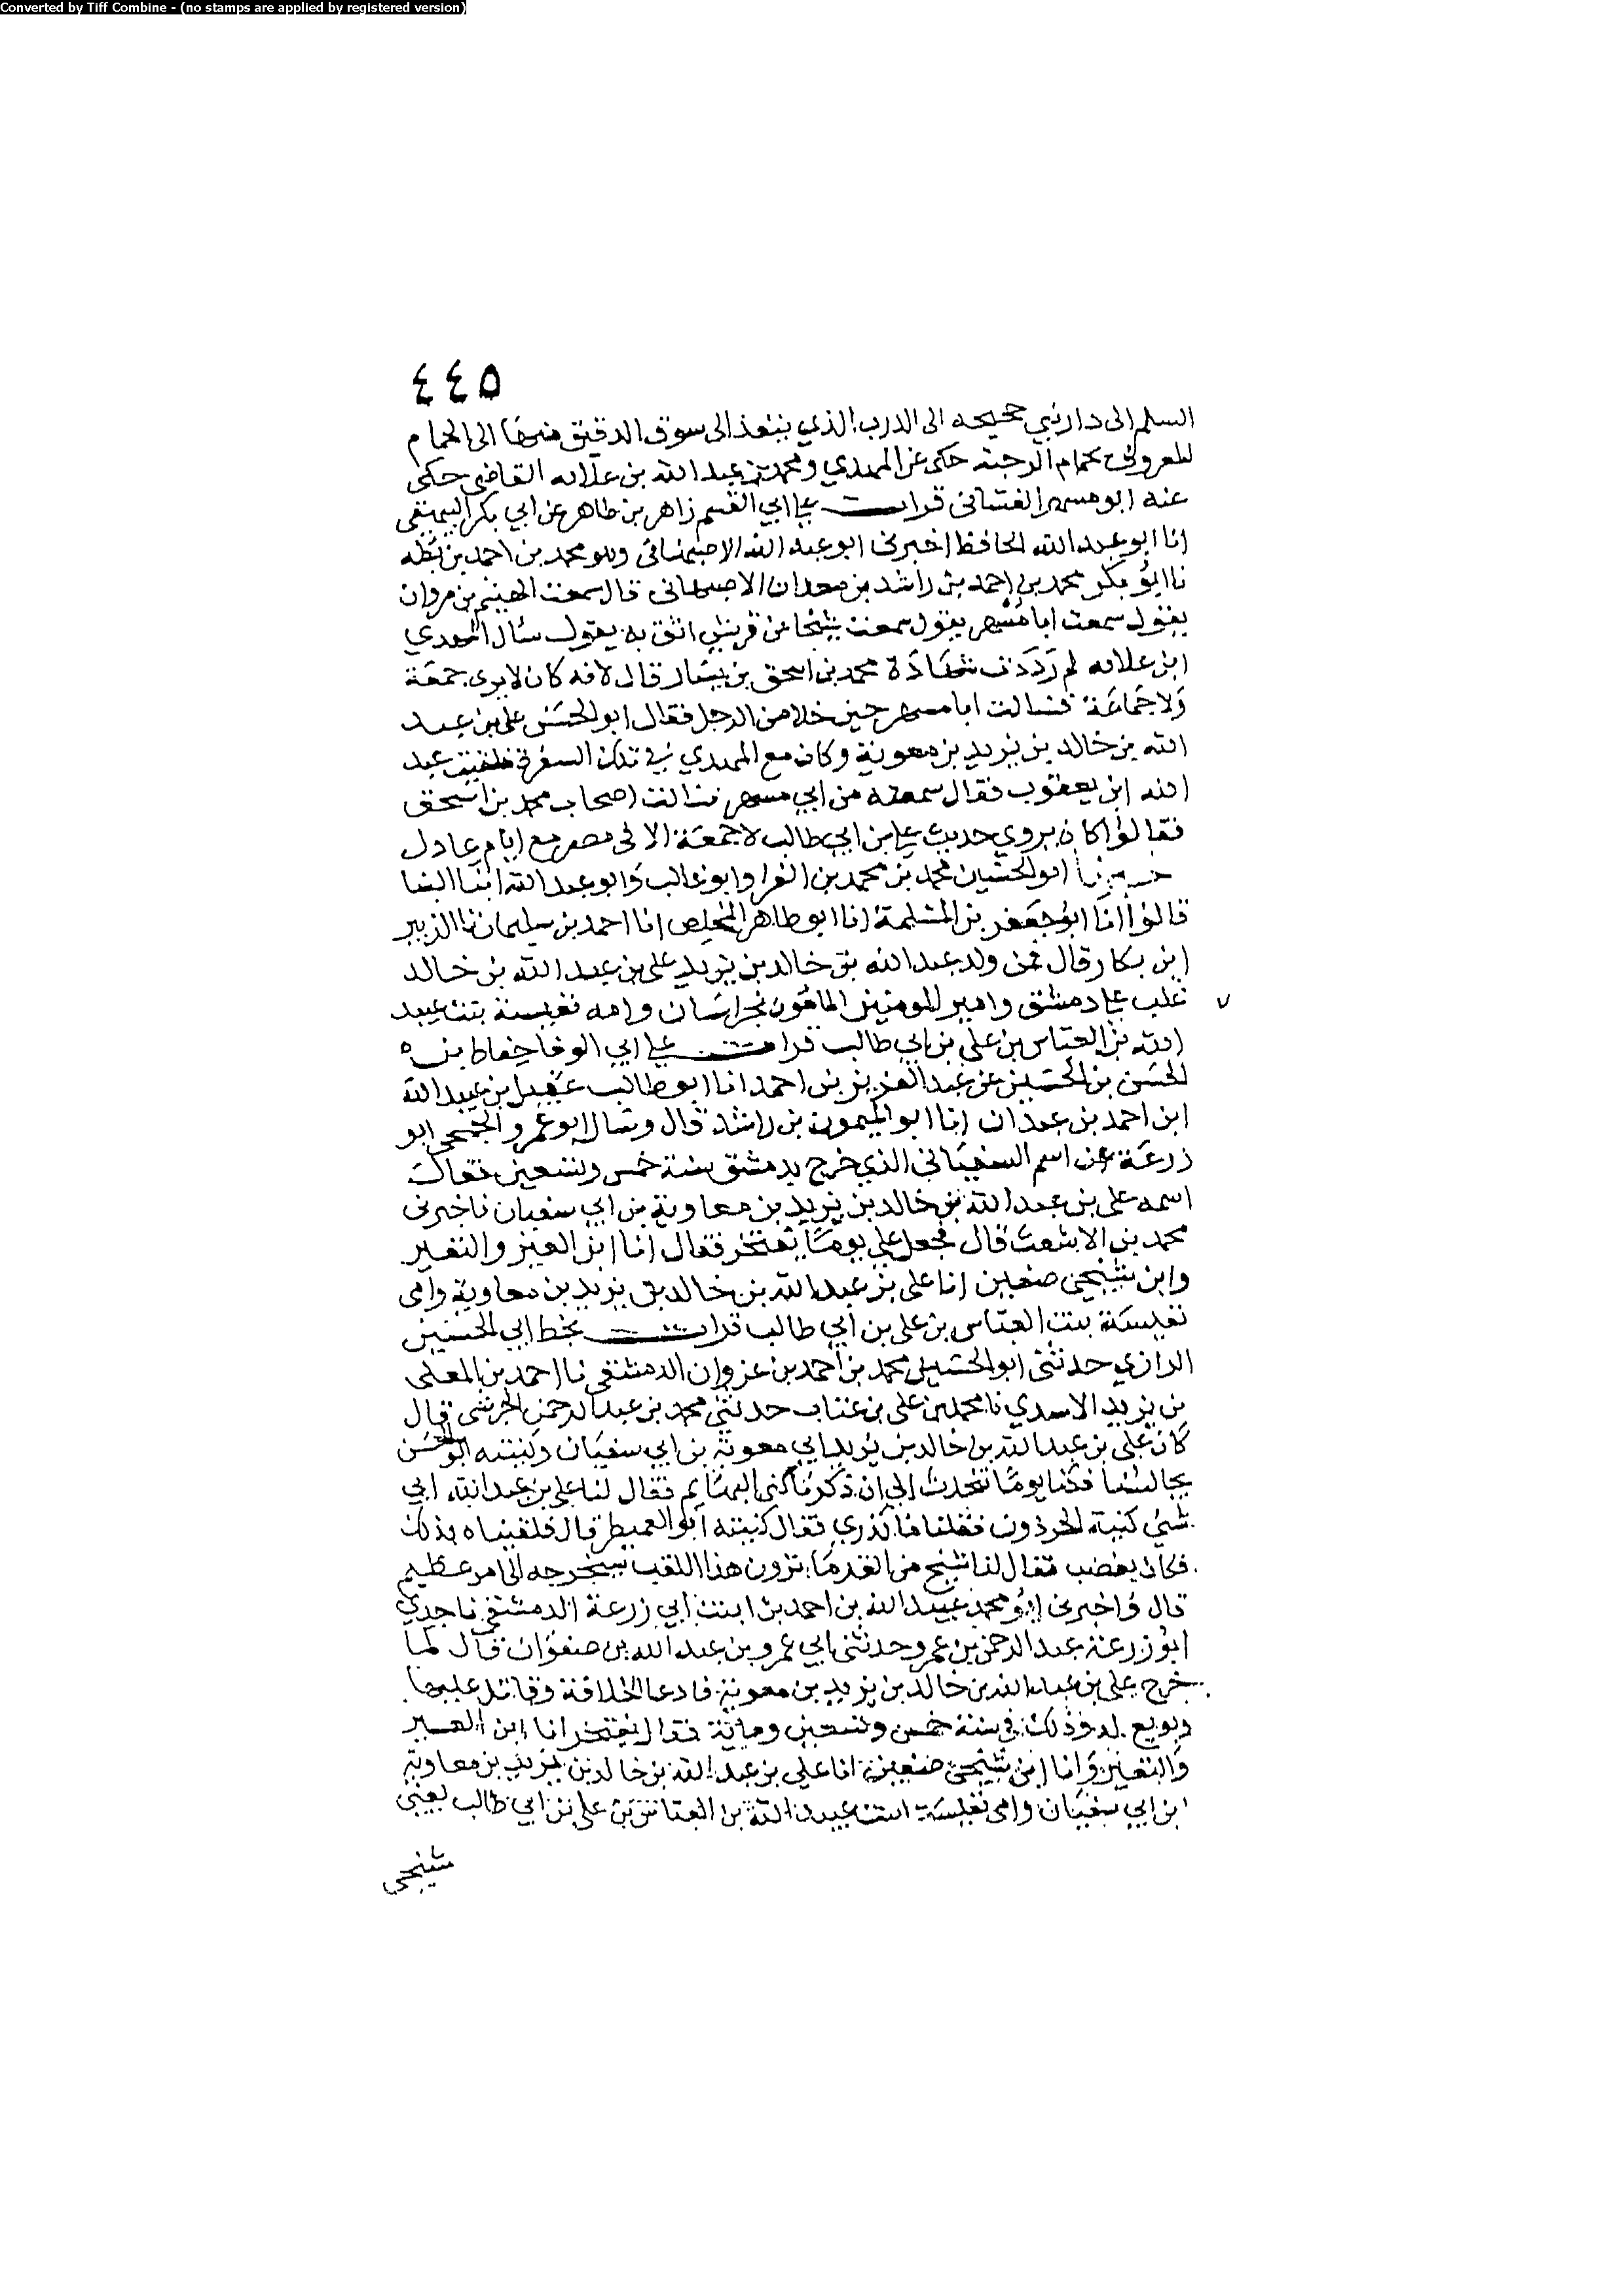 Converted by Tiff Combine - (no stamps are applied by registered version)
٤٤٥
السلم الى دار بني حجيجه الى الدرب الذي ينفذ الى سوق الدقيق منها الى الحمام
المعروف بحمام الرحبة حكى عن المهدي ومحمد بن عبد الله بن علاثه القاضي حكى
عنه ابو مسهر الغساني قرات على ابي القسم زاهر بن طاهر عن ابي بكر البيهقي
انا ابو عبد الله الحافظ اخبرني ابو عبد الله الاصبهاني وهو محمد بن احمد بن بطه
نا ابو بكر محمد بن احمد بن راشد بن معدان الاصبهاني قال سمعت الهيثم بن مروان
يقول سمعت ابا مسهر يقول سمعت شيخا من قريش اثق به يقول سأل المهدي
ابن علاثه لم رَدَدت شهَادَة محمد بن اسحق بن يسار قال لانه كان لا يرى جمعَة
وَلا جَمَاعَة فسالت ابا مسهر حين خلا من الرجل فقال ابو الحسَن علي بن عبد
الله بن خالد بن يزيد بن معوية وكان مع المهدي في تلك السفرة فلقيت عبد
الله ابن يعقوب فقال سمعته من ابي مسهر فسالت اصحاب محمد بن اسحق
فقالوا كان يروي حديث علي بن ابي طالب لا جمعَة الا في مصر مع امام عادل
اخبرنا ابو الحسَين محمد بن محمد بن الفرا وابو غالب وَابو عبد الله ابنا البنا
قالوا انا ابو جَعفر بن المسلمة انا ابو طاهر المخلص انا احمد بن سليمان نا الزبير
ابن بكار قال فمن ولد عبد الله بن خالد بن يزيد علي بن عبد الله بن خالد
تغلب على دمشق وامير المومنين المامون بخراسَان وامه نفيسة بنت عبيد
الله بن العباس بن علي بن ابي طالب قرات على ابي الوفا حفاظ بن
الحسَن بن الحسَين عن عبد العزيز بن احمد انا ابو طالب عَقيل بن عبيد الله
ابن احمد بن عبدان انا ابو الميمون بن راشد قال وسال ابو عمرو الجمحي ابو
زرعَة عن اسم السفيَاني الذي خرج بدمشق سنة خمس وتسعين فقال
اسمه علي بن عبد الله بن خالد بن يزيد بن معاوية بن ابي سفيان فاخبرني
محمد بن الاشعث قال فجعل علي يومًا يفتخر فقال انا ابن العير والنفير
وابن شيخي صفين انا علي بن عبد الله بن خالد بن يزيد بن معاوية وامي
نفيسَة بنت العبَاس بن علي بن ابي طالب قرات بخط ابي الحسَين
الرازي حدثني ابو الحسَين محمد بن احمد بن غزوان الدمشقي نا احمد بن المعلى
بن يزيد الاسدي نا محمد بن علي بن عتاب حدثني محمد بن عبد الرحمن الجرشي قال
كَان علي بن عبد الله بن خالد بن يزيد ابي معوية بن ابي سفيَان وكنيته ابو الحسَن
يجالسُنا فكنا يومًا نتحدث الى ان ذكرنا كنى البهَايم فقال لنا علي بن عبد الله ابي
شيء كنية الحرذون فقلنا مَا ندري فقال كنيته ابو العميطر قال فلقبناه بذلك
فكان يغضب فقال لنا شيخ من القدمَا ترون هذا اللقب سيخرجه الى امر عظيم
قال وَاخبرني ابو محمد عبيد الله بن احمد بن ابنت ابي زرعة الدمشقي نا جدي
ابو زرعة عبد الرحمن بن عمرو حدثني ابي عمرو بن عبد الله بن صفوَان قال لما
خرج علي بن عبد الله بن خالد بن يزيد بن معوية فادعا الخلافة وقاتل عليها
وبويع له وَذلك في سنة خمس وتسعين ومايَة فقال يفتخر انا ابن العير
وَالنفير وَانا ابن شيخي صفين انا علي بن عبد الله بن خالد بن يزيد بن معاوية
ابن ابي سفيَان وامي نفيسَة ابنت عبيد الله بن العبَاس بن علي بن ابي طالب يعني
شيخي